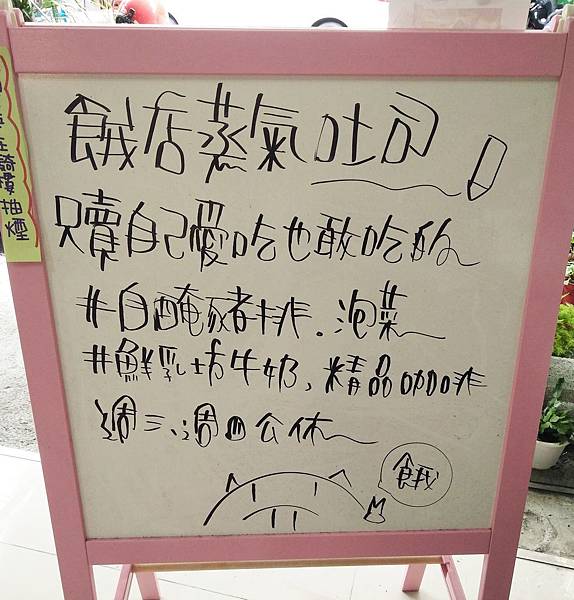 餓店蒸氣吐司
只賣自己愛吃也敢吃的
#自醃豬排.泡菜
#鮮乳坊牛奶,精品咖啡
週三、週四公休
餓
在騎樓抽煙